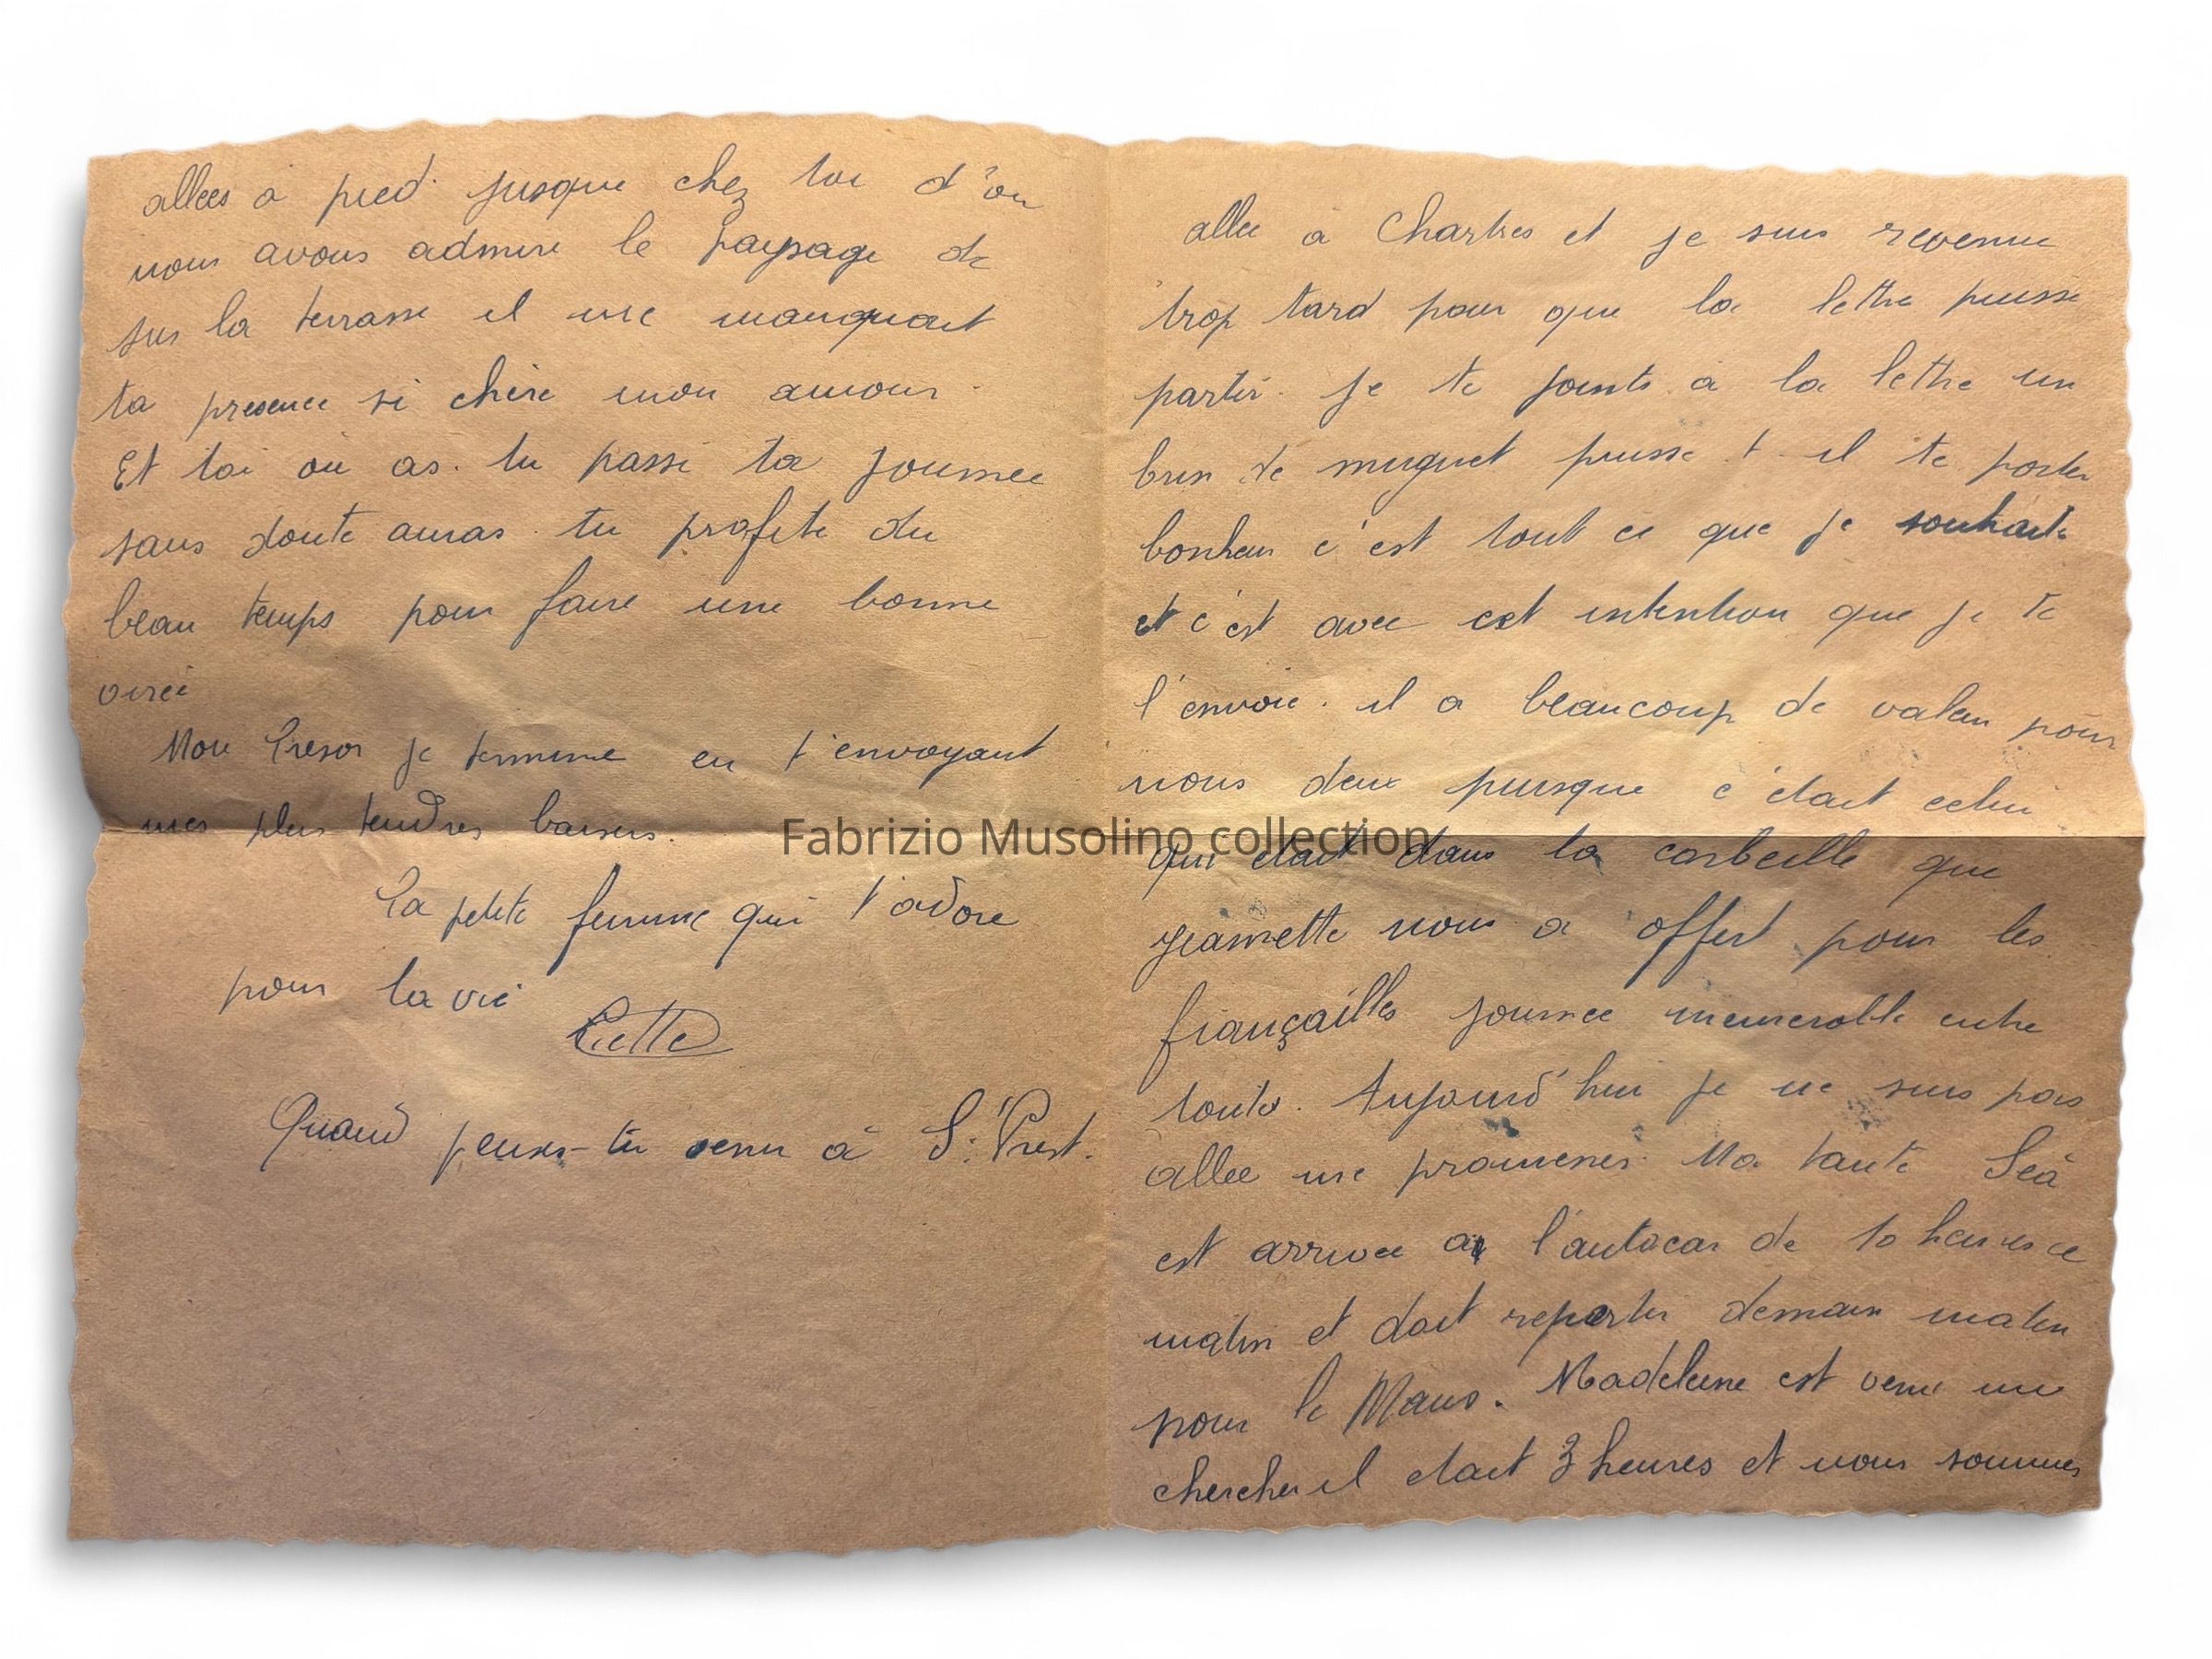 allees à pied jusque chez toi d'ou
nous avons admire le paysage de
sur la terrasse il me manquait
ta presence si chère mon amour.
Et toi où as-tu passé ta journee
sans doute auras-tu profite du
beau temps pour faire une bonne
virée
Mon Tresor je termine en t'envoyant
mes plus tendres baisers.
Ta petite femme qui t'adore
pour la vie
Quand peuxs-tu venir à St Prest.
allee à Chartres et je suis revenue
trop tard pour que la lettre puisse
partir. Je te joints à la lettre un
brin de muguet puisse t-il te porter
bonheur c'est tout ce que je souhaite
et c'est avec cet intention que je te
l'envoie. il a beaucoup de valeur pour
nous deux puisque c'était celui
qui était dans la corbeille que
Jeannette nous a offert pour les
fiançailles journee memorable entre
toute. Aujourd'hui je ne suis pas
allee me promener. Ma tante Léa
est arrivee a l'autocar de 10 heures ce
matin et doit repartir demain matin
pour le Mans. Madeleine est venue me
chercher il etait 3 heures et nous sommes
Fabrizio Musolino collection